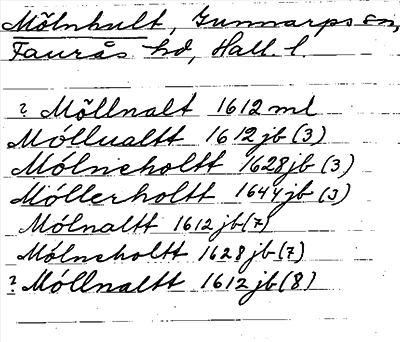 Mölnhult, Gunnarps sn,
Faurås hd, Hall. l.
? Möllnalt 1612 ml
Móllualtt 1612 jb (3)
Mólneholtt 1628 jb (3)
Móllerholtt 1644 jb (3)
Mólnaltt 1612 jb (7)
Mólneholtt 1628 jb (7)
? Móllnaltt 1612 jb (8)